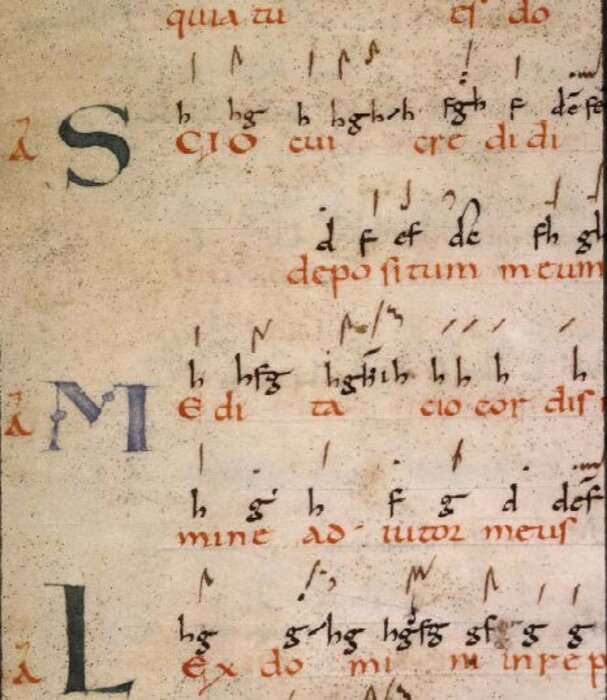 quia tu es do
h hg h hghh fgh f
SCIO cui cre di di
d f ef de fh gh
depo situm meum
h hfg h h h h
MEdi ta cio cor dis
h g h f g d def
mine ad iutor meus
hg g hg hgfg gf g g
LEx do mi ni inrep